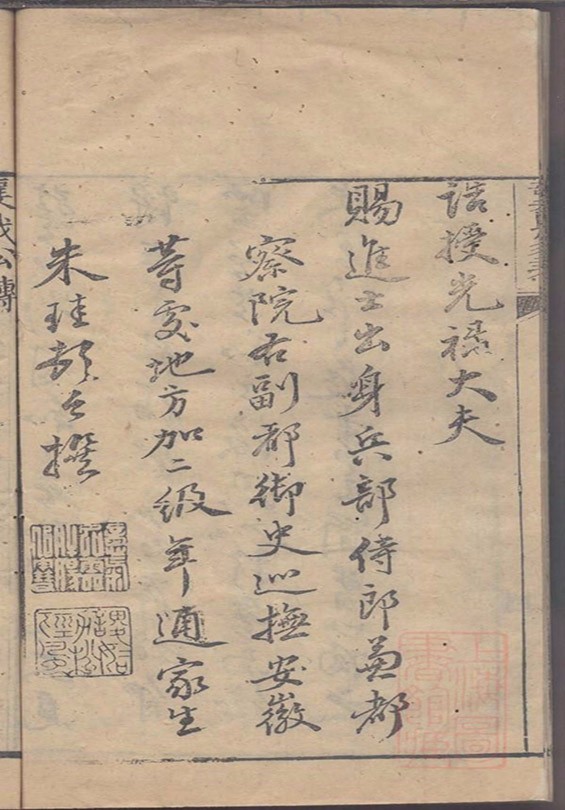 誥授光祿大夫
賜進士出身兵部侍郎兼都
察院右副都御史巡撫安徽
等處地方加二級年通家生
朱珪頓首撰
襄武公傳